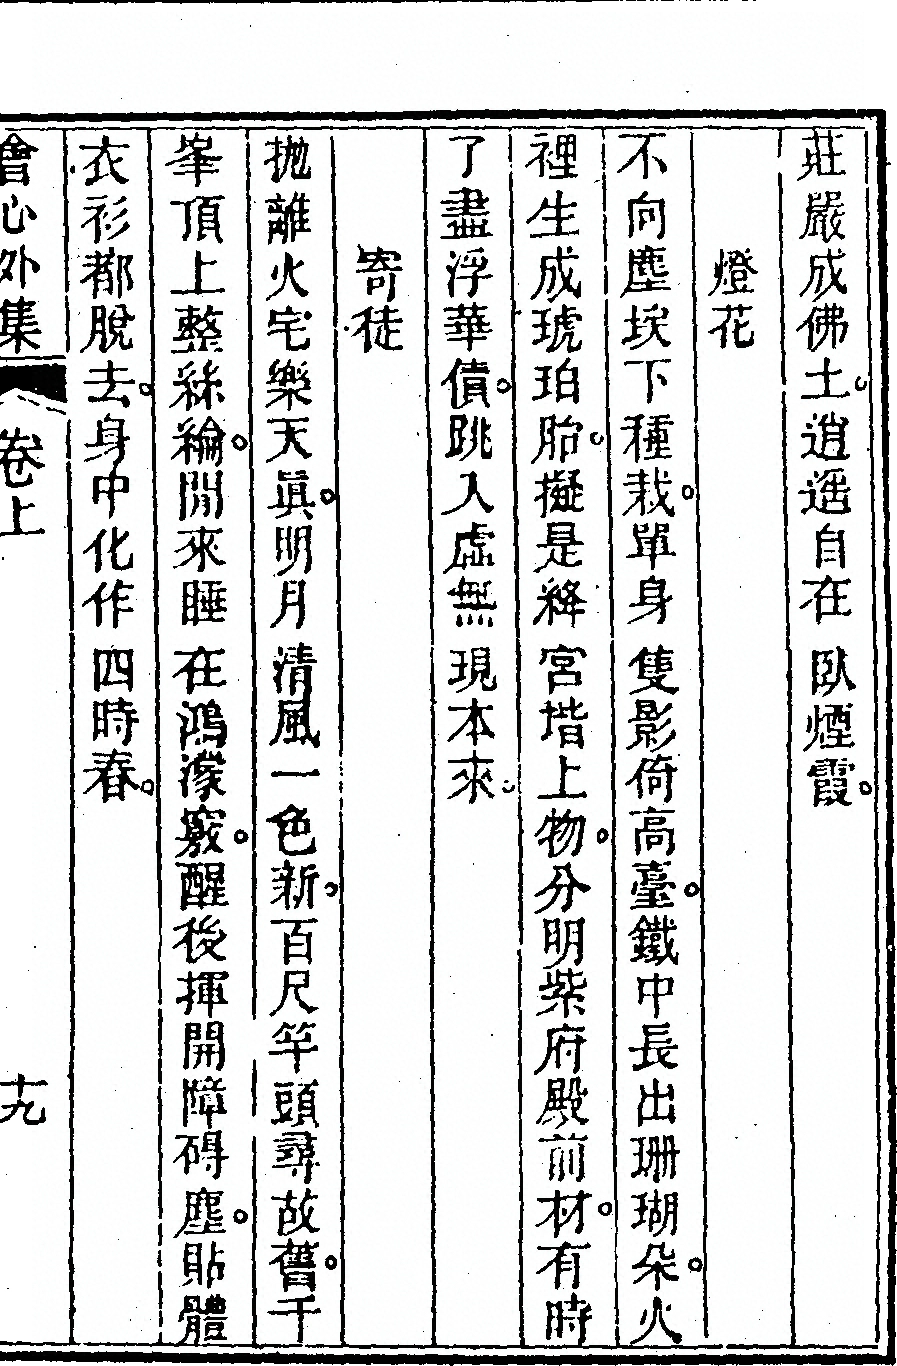 莊嚴成佛土。逍遥自在臥煙霞。
燈花
不向塵埃下種栽。單身隻影倚高臺。鐵中長出珊瑚朵。火
裡生成琥珀胎。擬是絳宮堦上物。分明紫府殿前材。有時
了盡浮華債。跳入虛無現本來。
寄徒
拋離火宅樂天眞。明月清風一色新。百尺竿頭尋故舊。千
峯頂上整絲綸。閒來睡在鴻濛竅。醒後揮開障碍塵。貼體
衣衫都脫去。身中化作四時春。
會心外集 卷上 十九